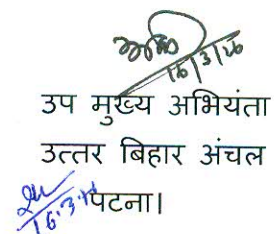 16/3/26
उप मुख्य अभियंता
उत्तर बिहार अंचल
पटना।